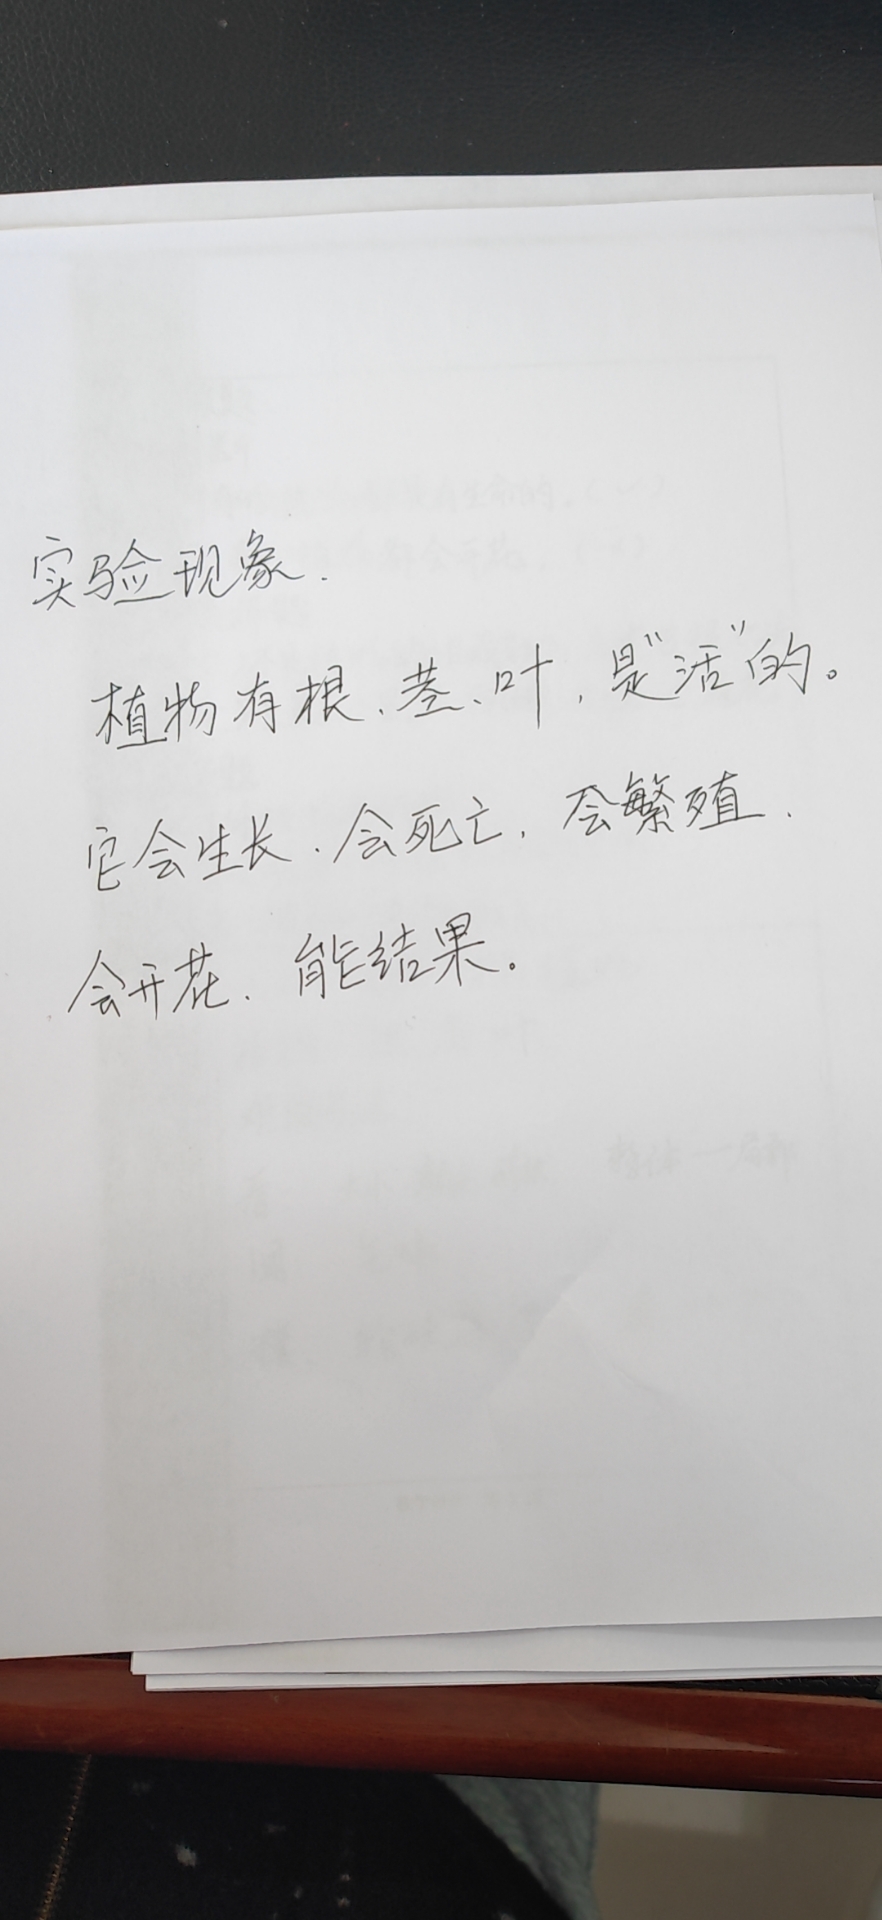 实验现象.
植物有根、茎、叶，是"活"的。
它会生长、会死亡，会繁殖、
会开花、能结果。